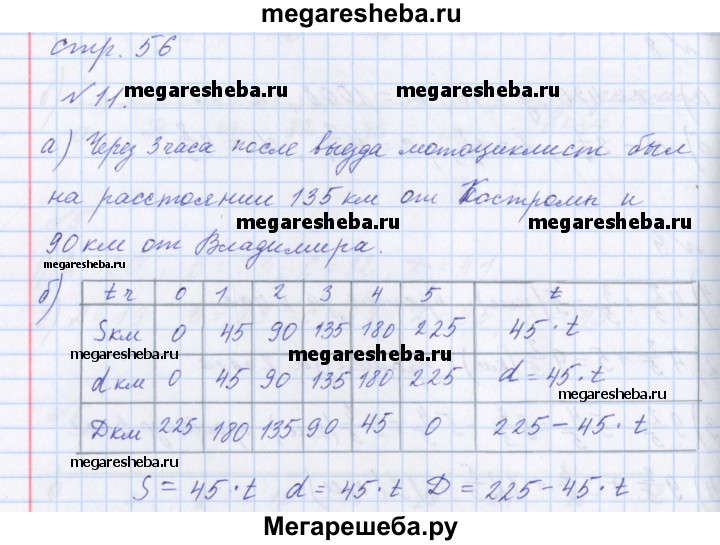 megaresheba.ru
стр. 56
megaresheba.ru megaresheba.ru
№11.
а) Через 3 часа после выезда мотоциклист был
на расстоянии 135 км от Костромы и
megaresheba.ru megaresheba.ru
90 км от Владимира.
megaresheba.ru
б) t ч 0 1 2 3 4 5 t
S км 0 45 90 135 180 225 45·t
megaresheba.ru megaresheba.ru
d км 0 45 90 135 180 225 d = 45·t
megaresheba.ru
D км 225 180 135 90 45 0 225 - 45·t
megaresheba.ru megaresheba.ru
S = 45·t d = 45·t D = 225 - 45·t
Мегарешеба.ру